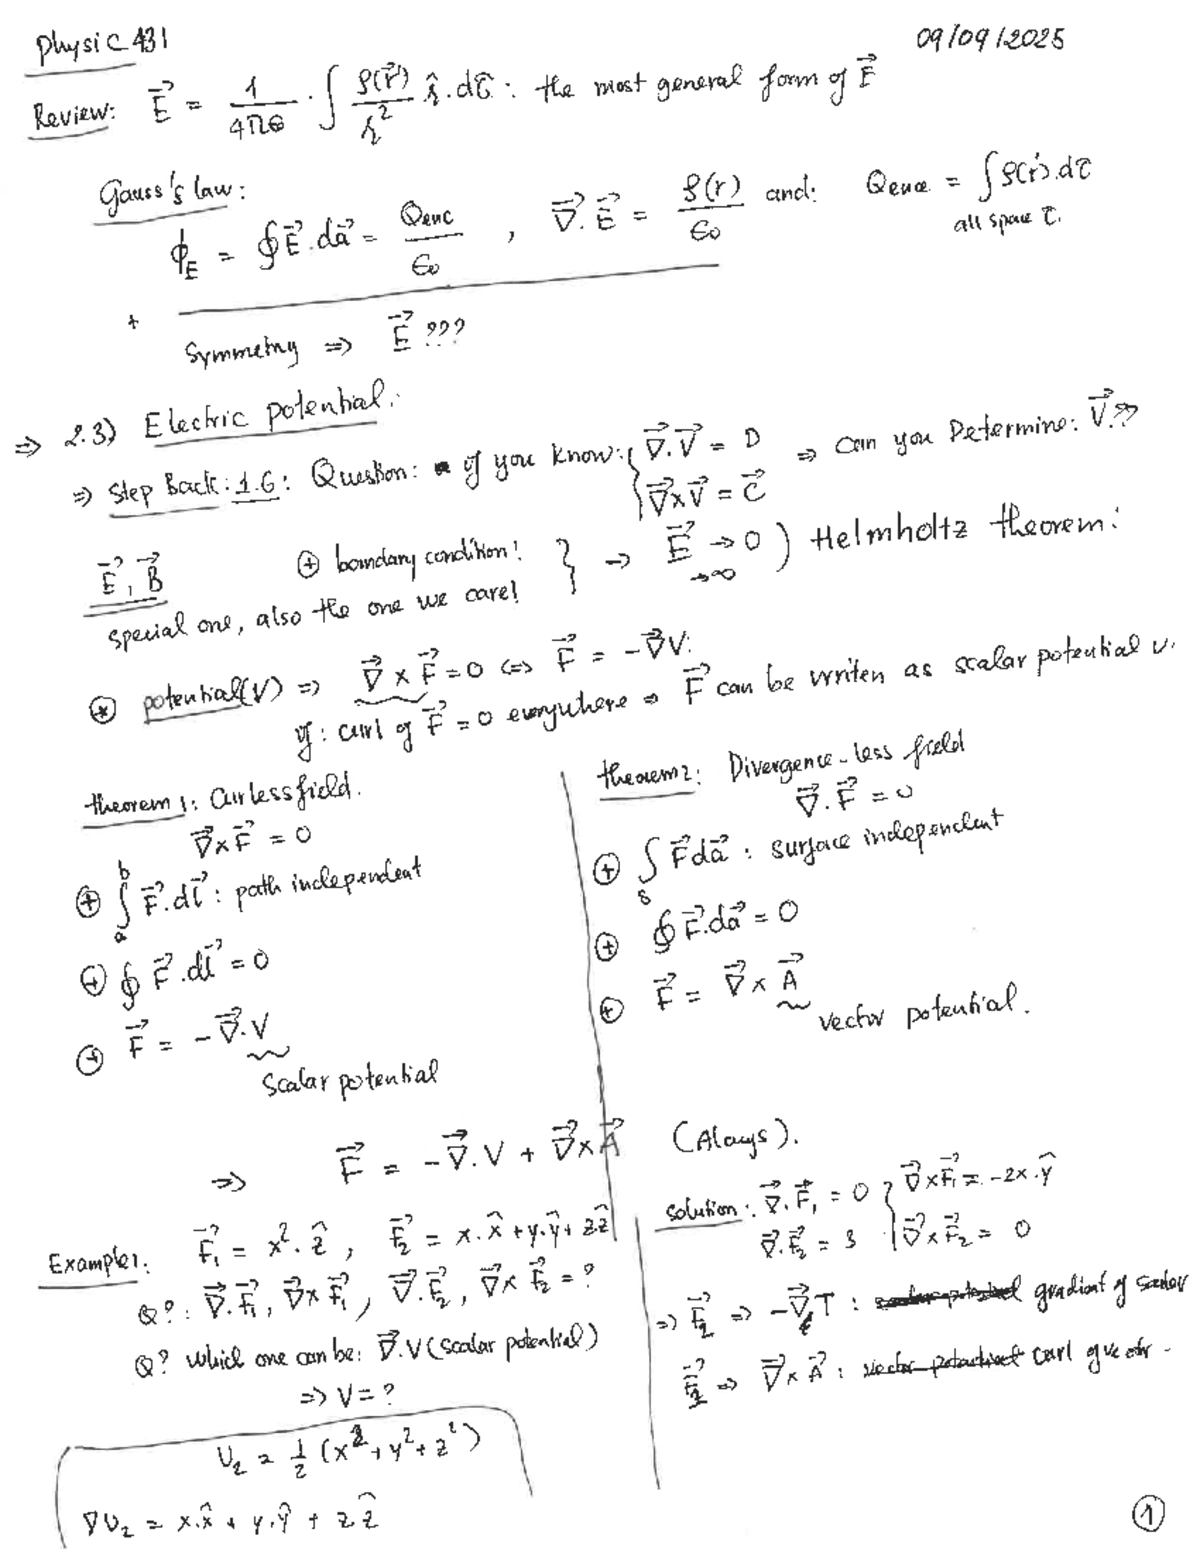 Physic 431
09/09/2025
Review: $\vec{E} = \frac{1}{4\pi\epsilon} \cdot \int \frac{\rho(\vec{r}')}{r^2} \hat{r} \cdot d\tau$ : the most general form of $\vec{E}$
Gauss's law:
$\phi_E = \oint \vec{E} \cdot d\vec{a} = \frac{Q_{enc}}{\epsilon_0}$ , $\vec{\nabla} \cdot \vec{E} = \frac{\rho(r)}{\epsilon_0}$ and: $Q_{enc} = \int \rho(r') \cdot d\tau$
all space τ.
+
Symmetry ⇒ $\vec{E}$ ???
⇒ 2.3) Electric potential:
⇒ Step Back: 1.6: Question: if you know: { $\vec{\nabla} \cdot \vec{V} = D$ ⇒ Can you Determine: $\vec{V}$ ??
$\vec{\nabla} \times \vec{V} = \vec{C}$
⊕ boundary condition! } → $\vec{E} \to 0$ ) Helmholtz theorem:
→∞
$\vec{E}, \vec{B}$
special one, also the one we care!
⊛ potential(V) ⇒ $\vec{\nabla} \times \vec{F} = 0 \Leftrightarrow \vec{F} = -\vec{\nabla} V$:
if: curl of $\vec{F} = 0$ everywhere ⇒ $\vec{F}$ can be writen as scalar potential v.
theorem 1: Curless field.
$\vec{\nabla} \times \vec{F} = 0$
⊕ $\int_a^b \vec{F} \cdot d\vec{l}$ : path independent
⊕ $\oint \vec{F} \cdot d\vec{l} = 0$
⊕ $\vec{F} = -\vec{\nabla} \cdot V$
Scalar potential
theorem 2: Divergence-less field
$\vec{\nabla} \cdot \vec{F} = 0$
⊕ $\int_s \vec{F} d\vec{a}$ : surface independent
⊕ $\oint \vec{F} \cdot d\vec{a} = 0$
⊕ $\vec{F} = \vec{\nabla} \times \vec{A}$
vector potential.
⇒ $\vec{F} = -\vec{\nabla} \cdot V + \vec{\nabla} \times \vec{A}$ (Always).
Example 1: $\vec{F}_1 = x^2 \cdot \hat{z}$ , $\vec{F}_2 = x \cdot \hat{x} + y \cdot \hat{y} + z\hat{z}$
Q?: $\vec{\nabla} \cdot \vec{F}_1, \vec{\nabla} \times \vec{F}_1, \vec{\nabla} \cdot \vec{F}_2, \vec{\nabla} \times \vec{F}_2 = ?$
Q? which one can be: $\vec{\nabla} \cdot V$ (scalar potential)
⇒ V = ?
$U_2 = \frac{1}{2}(x^2 + y^2 + z^2)$
$\nabla U_2 = x \cdot \hat{x} + y \cdot \hat{y} + z\hat{z}$
solution: $\vec{\nabla} \cdot \vec{F}_1 = 0$ } $\vec{\nabla} \times \vec{F}_1 = -2x \cdot \hat{y}$
$\vec{\nabla} \cdot \vec{F}_2 = 3$ $\vec{\nabla} \times \vec{F}_2 = 0$
⇒ $\vec{F}_2$ ⇒ $-\vec{\nabla} T$ : gradient of scalar
⇒ $\vec{\nabla} \times \vec{A}$ : vector potential curl
1